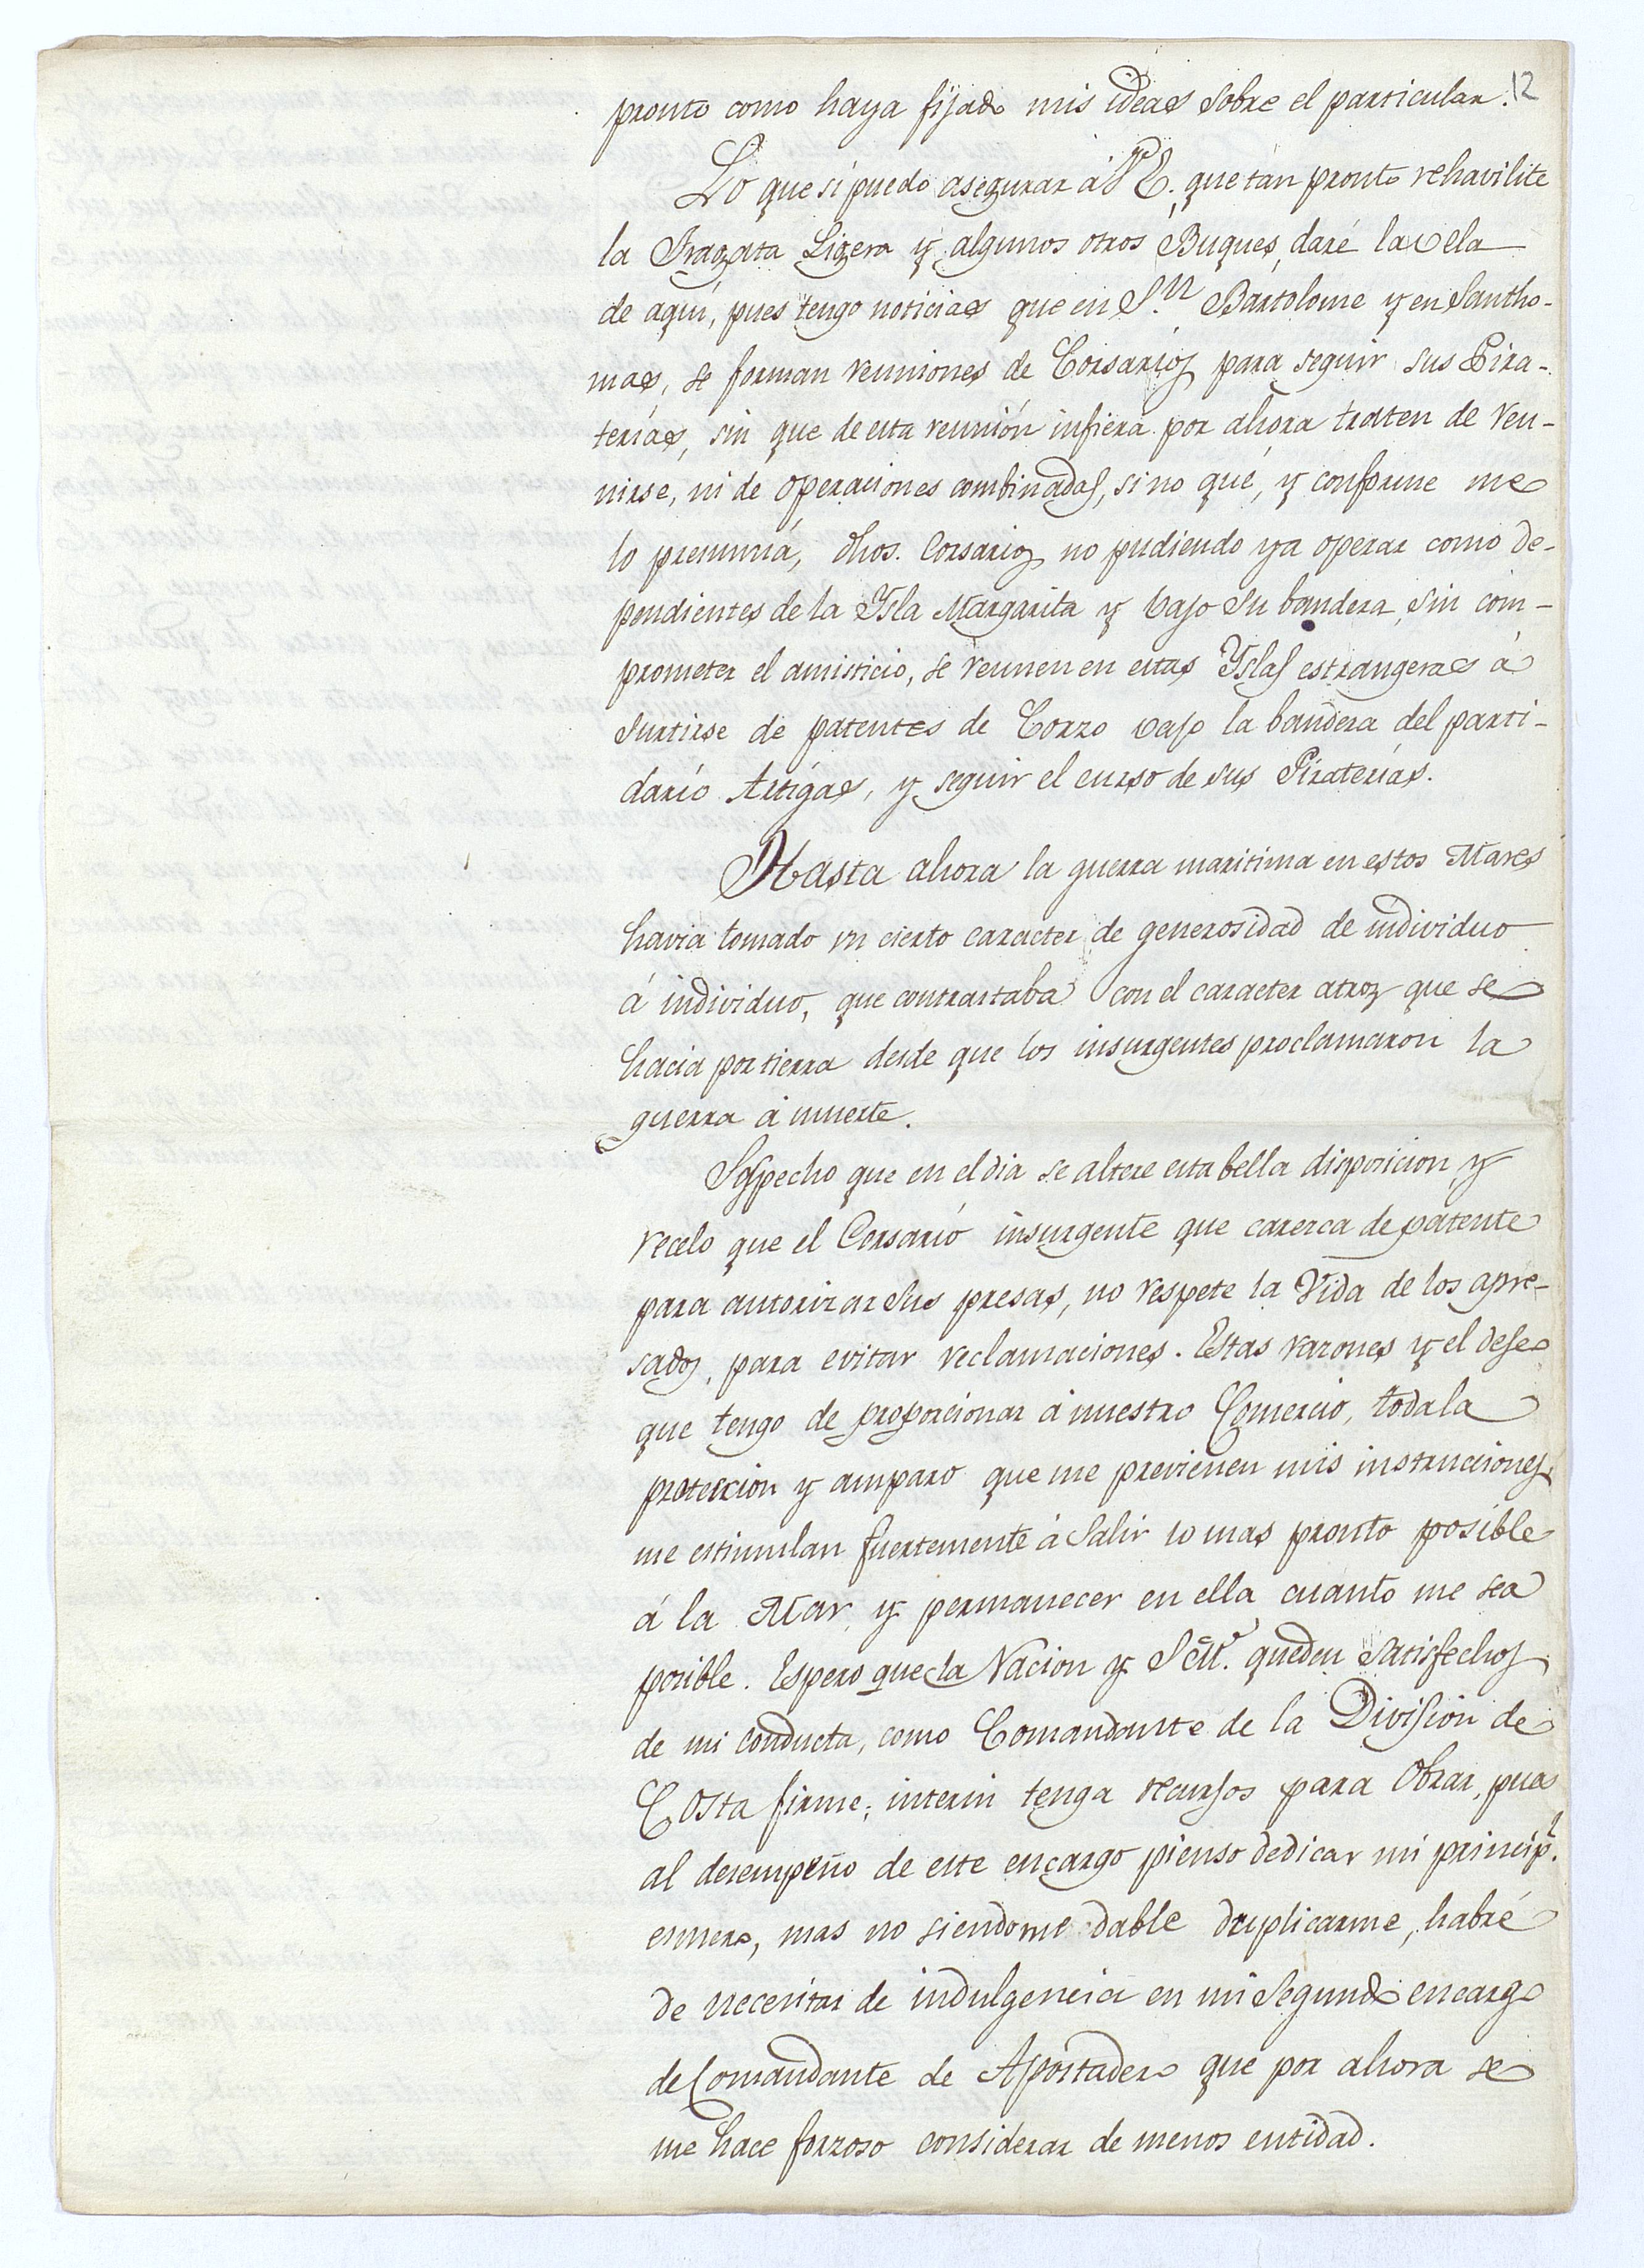 12
pronto como haya fijado mis ideas sobre el particular.
Lo que sí puedo asegurar á V.E. que tan pronto rehavilite
la Fragata Ligera y algunos otros Buques, daré la vela
de aquí, pues tengo noticias que en S.n Bartolome y en Santho-
mas, se forman reuniones de Corsarios para seguir sus Pira-
terías, sin que de esta reunión infiera por ahora traten de reu-
nirse, ni de operaciones combinadas, si no que, y conforme me
lo presumía, dhos. Corsarios no pudiendo ya operar como de-
pendientes de la Ysla Margarita y bajo su bandera, sin com-
prometer el amisticio, se reunen en estas Yslas estrangeras á
surtirse de patentes de Corzo bajo la bandera del parti-
dario Artígas, y seguir el curso de sus Piraterías.
Hasta ahora la guerra maritima en estos Mares
havia tomado un cierto caracter de generosidad de individuo
á individuo, que contrastaba con el caracter atroz que se
hacia por tierra desde que los insurgentes proclamaron la
guerra á muerte.
Sospecho que en el dia se altere esta bella disposicion, y
recelo que el Corsario insurgente que carezca de patente
para autorizar sus presas, no respete la Vida de los apre-
sados, para evitar reclamaciones. Estas razones y el deseo
que tengo de proporcionar á nuestro Comercio, toda la
proteccion y amparo que me previenen mis instrucciones,
me estimulan fuertemente á salir lo mas pronto posible
á la Mar, y permanecer en ella cuanto me sea
posible. Espero que la Nacion y S.M. queden satisfechos
de mi conducta, como Comandante de la Division de
Costa firme; interin tenga recursos para obrar, pues
al desempeño de este encargo pienso dedicar mi princip.l
esmero, mas no siendome dable duplicarme, habré
de necesitar de indulgencia en mi segundo encargo
de Comandante de Apostadero que por ahora se
me hace forzoso considerar de menos entidad.